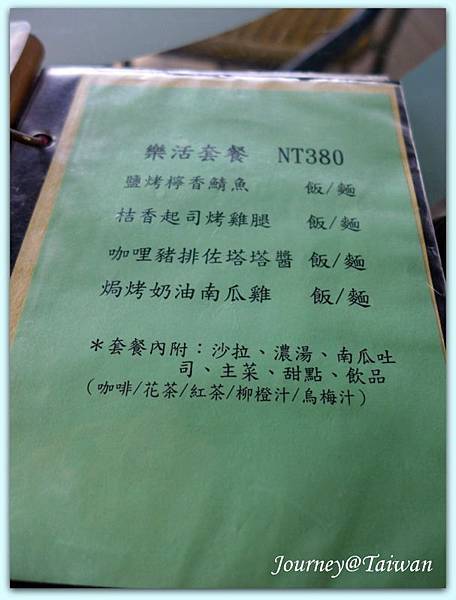 樂活套餐 NT380
鹽烤檸香鯖魚 飯/麵
桔香起司烤雞腿 飯/麵
咖哩豬排佐塔塔醬 飯/麵
焗烤奶油南瓜雞 飯/麵
＊套餐內附：沙拉、濃湯、南瓜吐
司、主菜、甜點、飲品
（咖啡/花茶/紅茶/柳橙汁/烏梅汁）
Journey@Taiwan